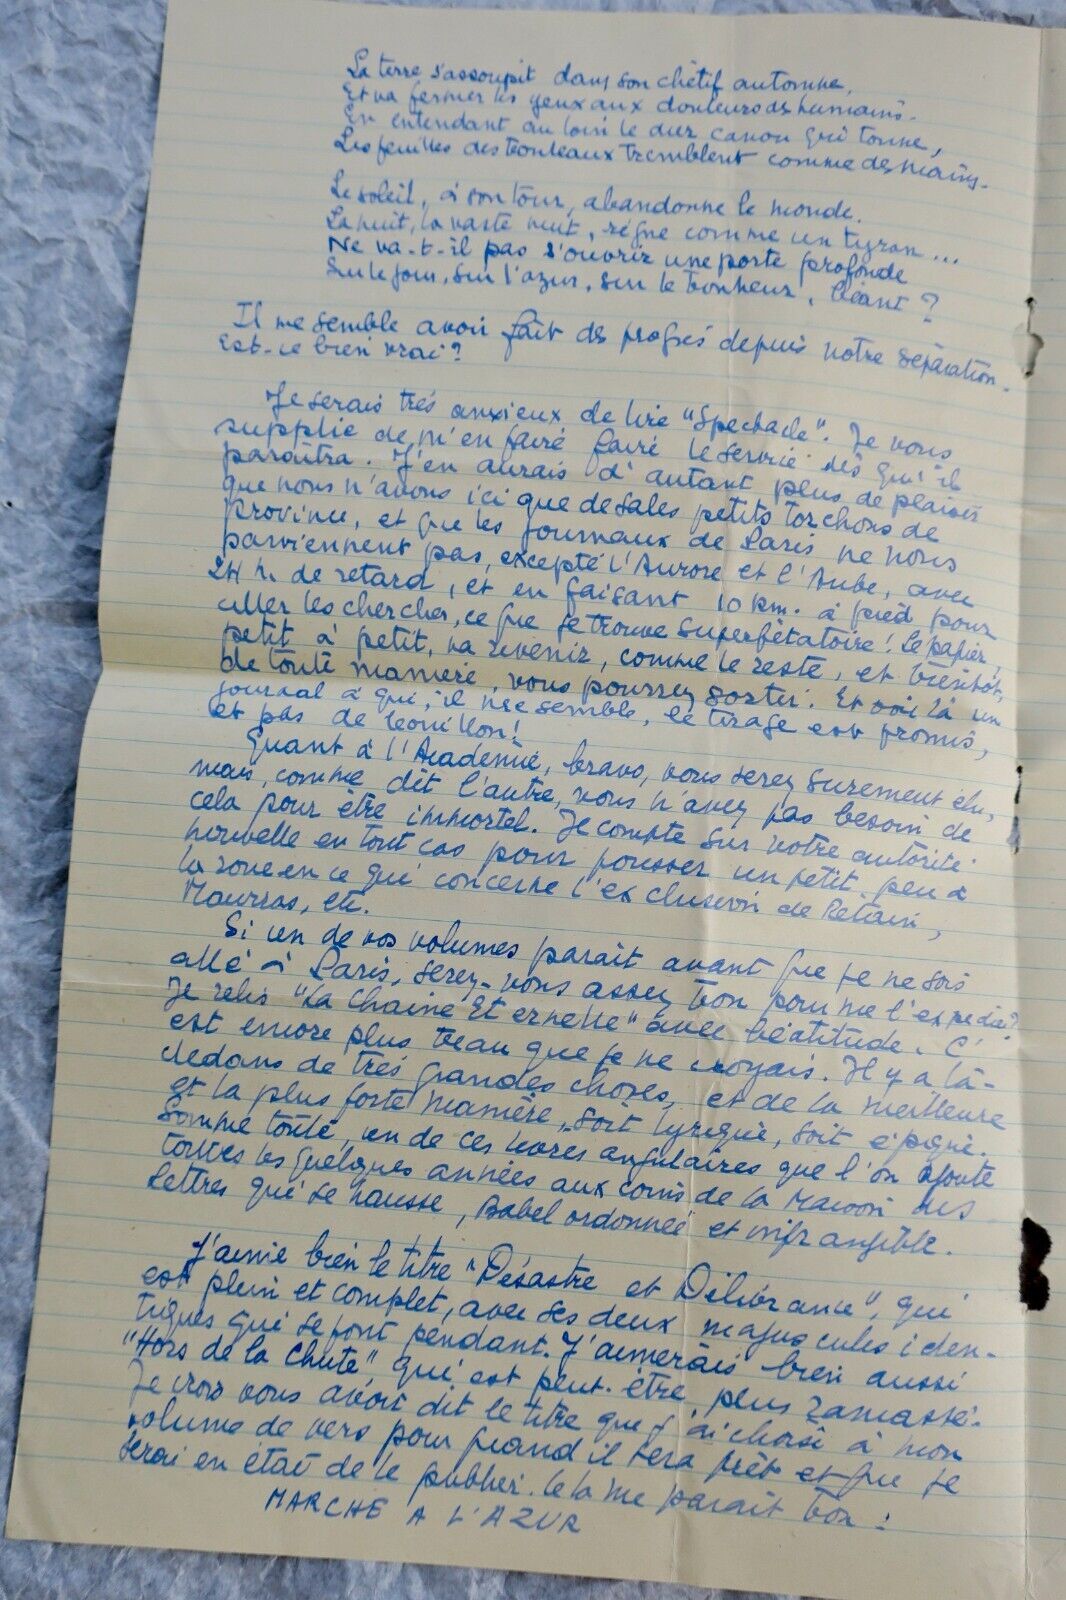 La terre s'assoupit dans son chétif automne,
Et va fermer les yeux aux douleurs des humains.
En entendant au loin le dur canon qui tonne,
Les feuilles des bouleaux tremblent comme des mains.
Le soleil, à son tour, abandonne le monde.
La nuit, la vaste nuit, règne comme un tyran...
Ne va-t-il pas s'ouvrir une porte profonde
Sur le jour, sur l'azur, sur le bonheur, béant ?
Il me semble avoir fait des progrès depuis notre séparation.
Est-ce bien vrai ?
Je serais très anxieux de lire "Spectacle". Je vous
supplie de m'en faire faire le service dès qu'il
paraîtra. J'en aurais d'autant plus de plaisir
que nous n'avons ici que de sales petits torchons de
province, et que les journaux de Paris ne nous
parviennent pas, excepté l'Aurore et l'Aube, avec
24 h. de retard, et en faisant 10 km. à pied pour
aller les chercher, ce que je trouve superfétatoire ! Le papier,
petit à petit, va revenir, comme le reste, et bientôt,
de toute manière, vous pourrez sortir. Et voilà un
journal à qui, il me semble, le tirage est promis,
et pas de bouillon !
Quant à l'Académie, bravo, vous serez surement élu,
mais, comme dit l'autre, vous n'avez pas besoin de
cela pour être immortel. Je compte sur votre autorité
nouvelle en tout cas pour pousser un petit peu à
la roue en ce qui concerne l'exclusion de Pétain,
Maurras, etc.
Si un de vos volumes parait avant que je ne sois
allé à Paris, serez-vous assez bon pour me l'expédier ?
Je relis "La Chaine Eternelle" avec béatitude. C'
est encore plus beau que je ne croyais. Il y a là-
dedans de très grandes choses, et de la meilleure
et la plus forte manière, soit lyrique, soit épique.
Somme toute, un de ces livres angulaires que l'on ajoute
toutes les quelques années aux coins de la Maison des
Lettres qui se hausse, Babel ordonnée et infrangible.
J'aime bien le titre "Désastre et Délivrance", qui
est plein et complet, avec ses deux majuscules iden-
tiques qui se font pendant. J'aimerais bien aussi
"Hors de la Chute" qui est peut-être plus ramassé.
Je crois vous avoir dit le titre que j'ai choisi à mon
volume de vers pour quand il sera prêt et que je
serai en état de le publier. Cela me parait bon :
MARCHE A L'AZUR